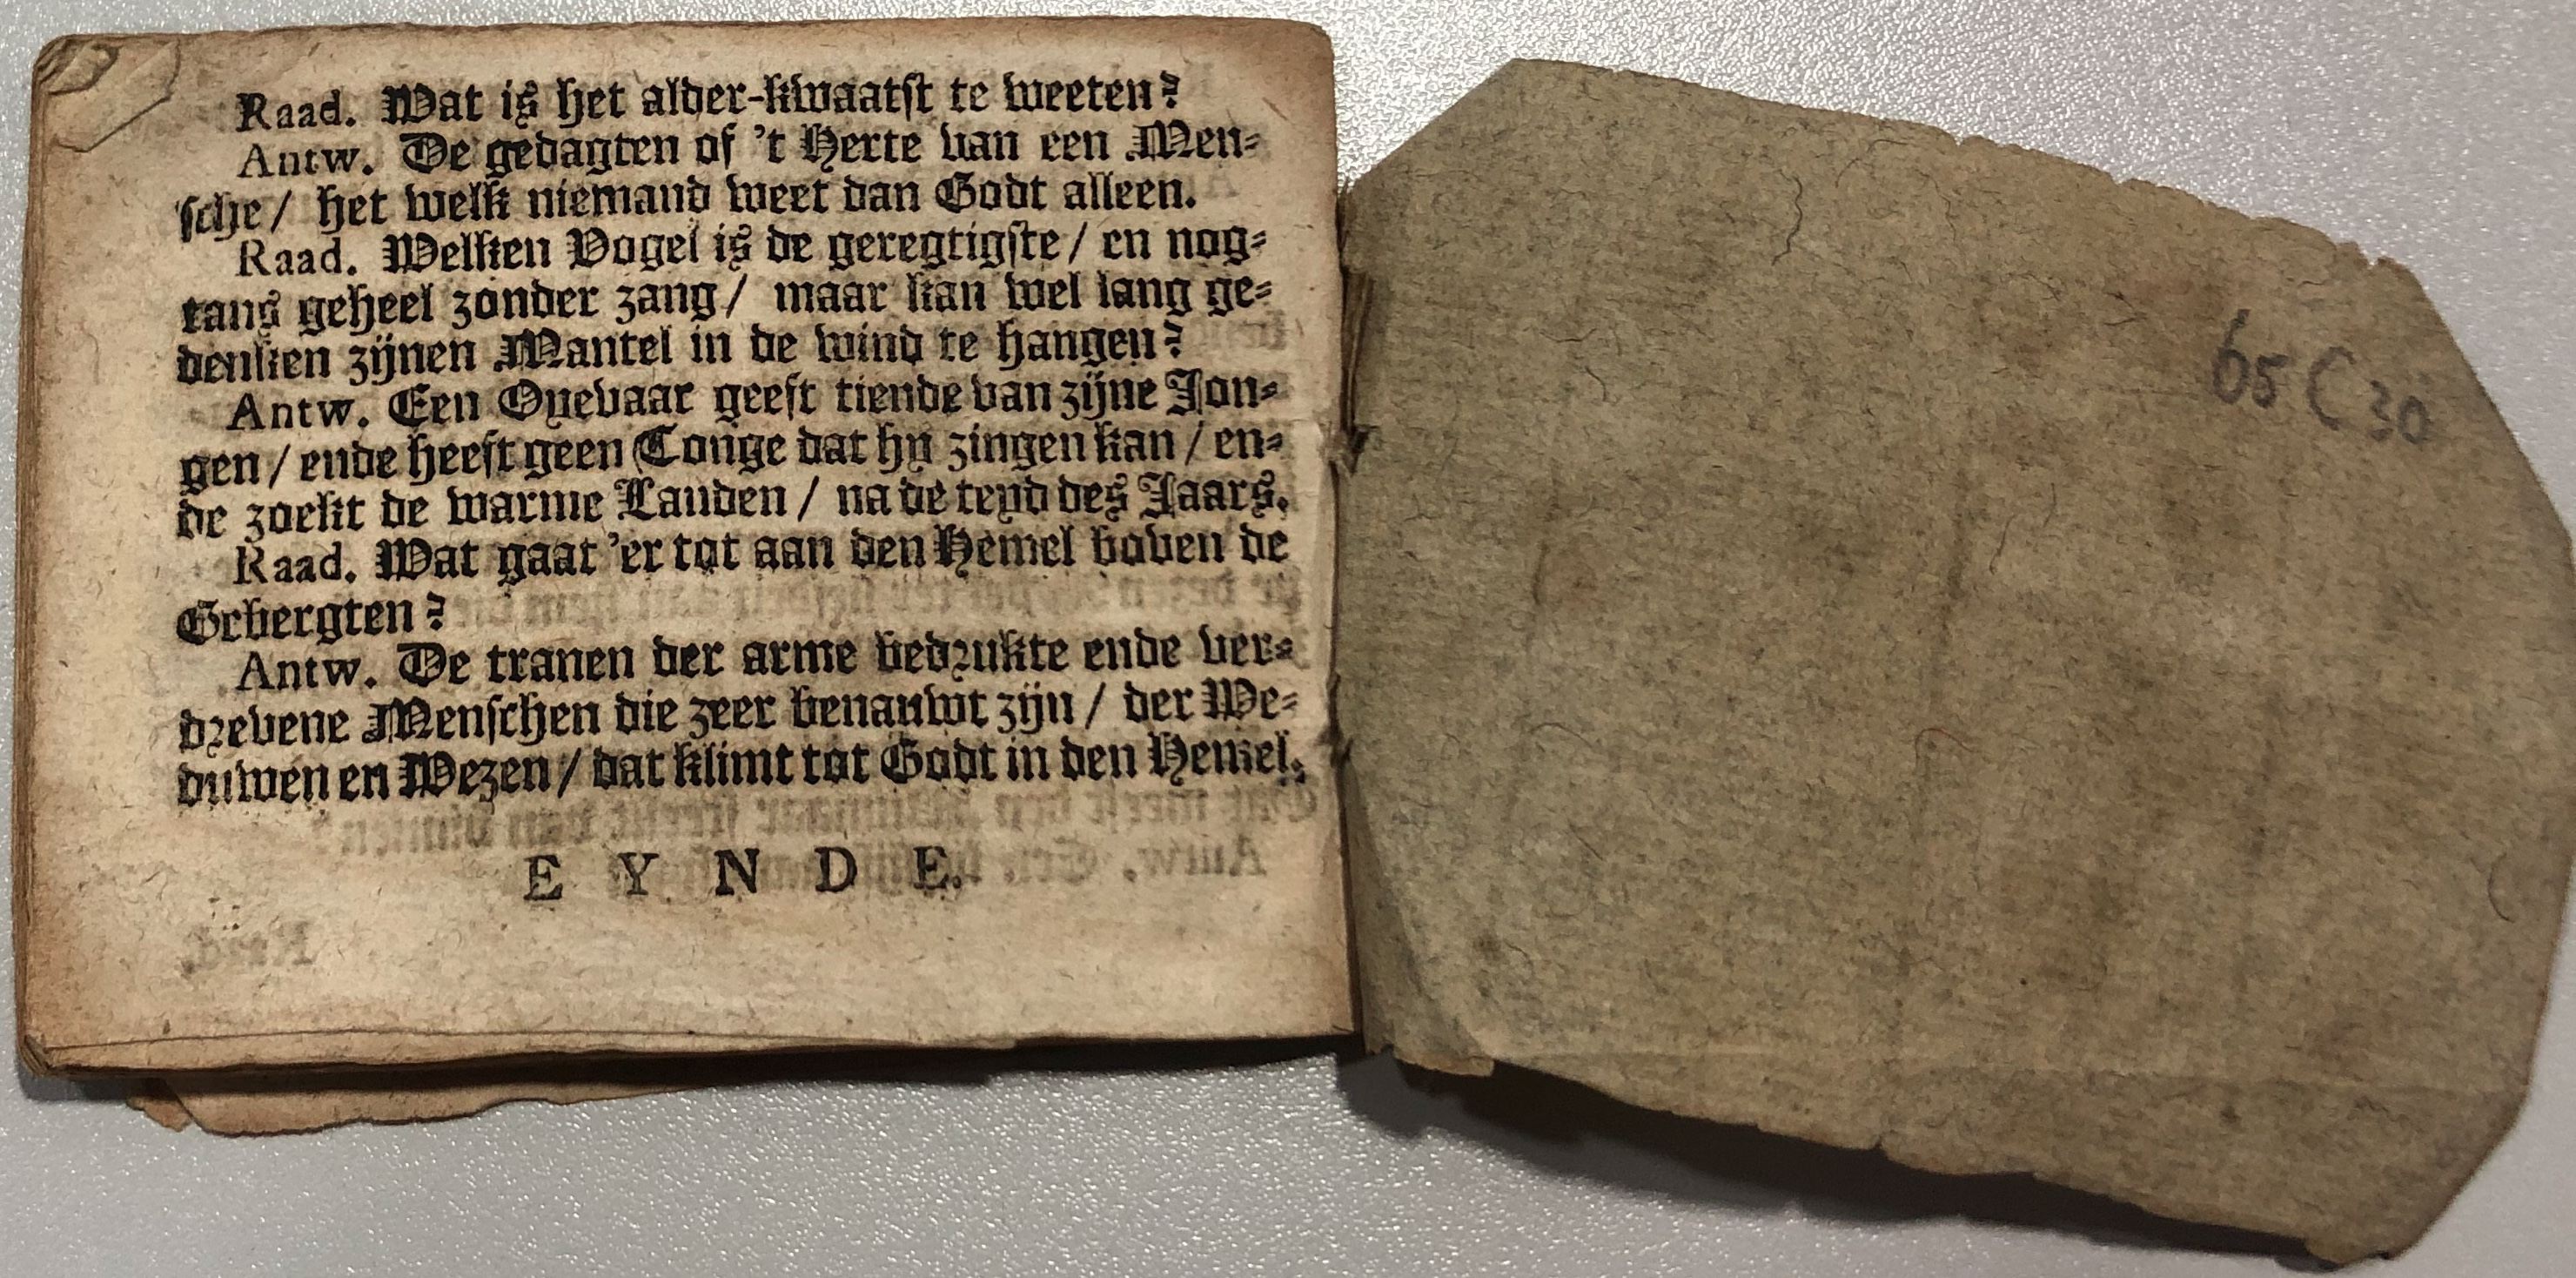 Raad. Wat is het alder-kwaatst te weeten?
Antw. De gedagten of 't Herte van een Men-
sche / het welk niemand weet dan Godt alleen.
Raad. Welken Vogel is de geregtigste / en nog-
tans geheel zonder zang / maar kan wel lang ge-
denken zijnen Mantel in de wind te hangen?
Antw. Een Oyevaar geeft tiende van zijne Jon-
gen / ende heeft geen Tonge dat hy zingen kan / en-
de zoekt de warme Landen / na de teyd des Jaars.
Raad. Wat gaat 'er tot aan den Hemel boven de
Gebergten?
Antw. De tranen der arme bedrukte ende ver-
drevene Menschen die zeer benauwt zijn / der We-
duwen en Wezen / dat klimt tot Godt in den Hemel.
E Y N D E.
65 C 30